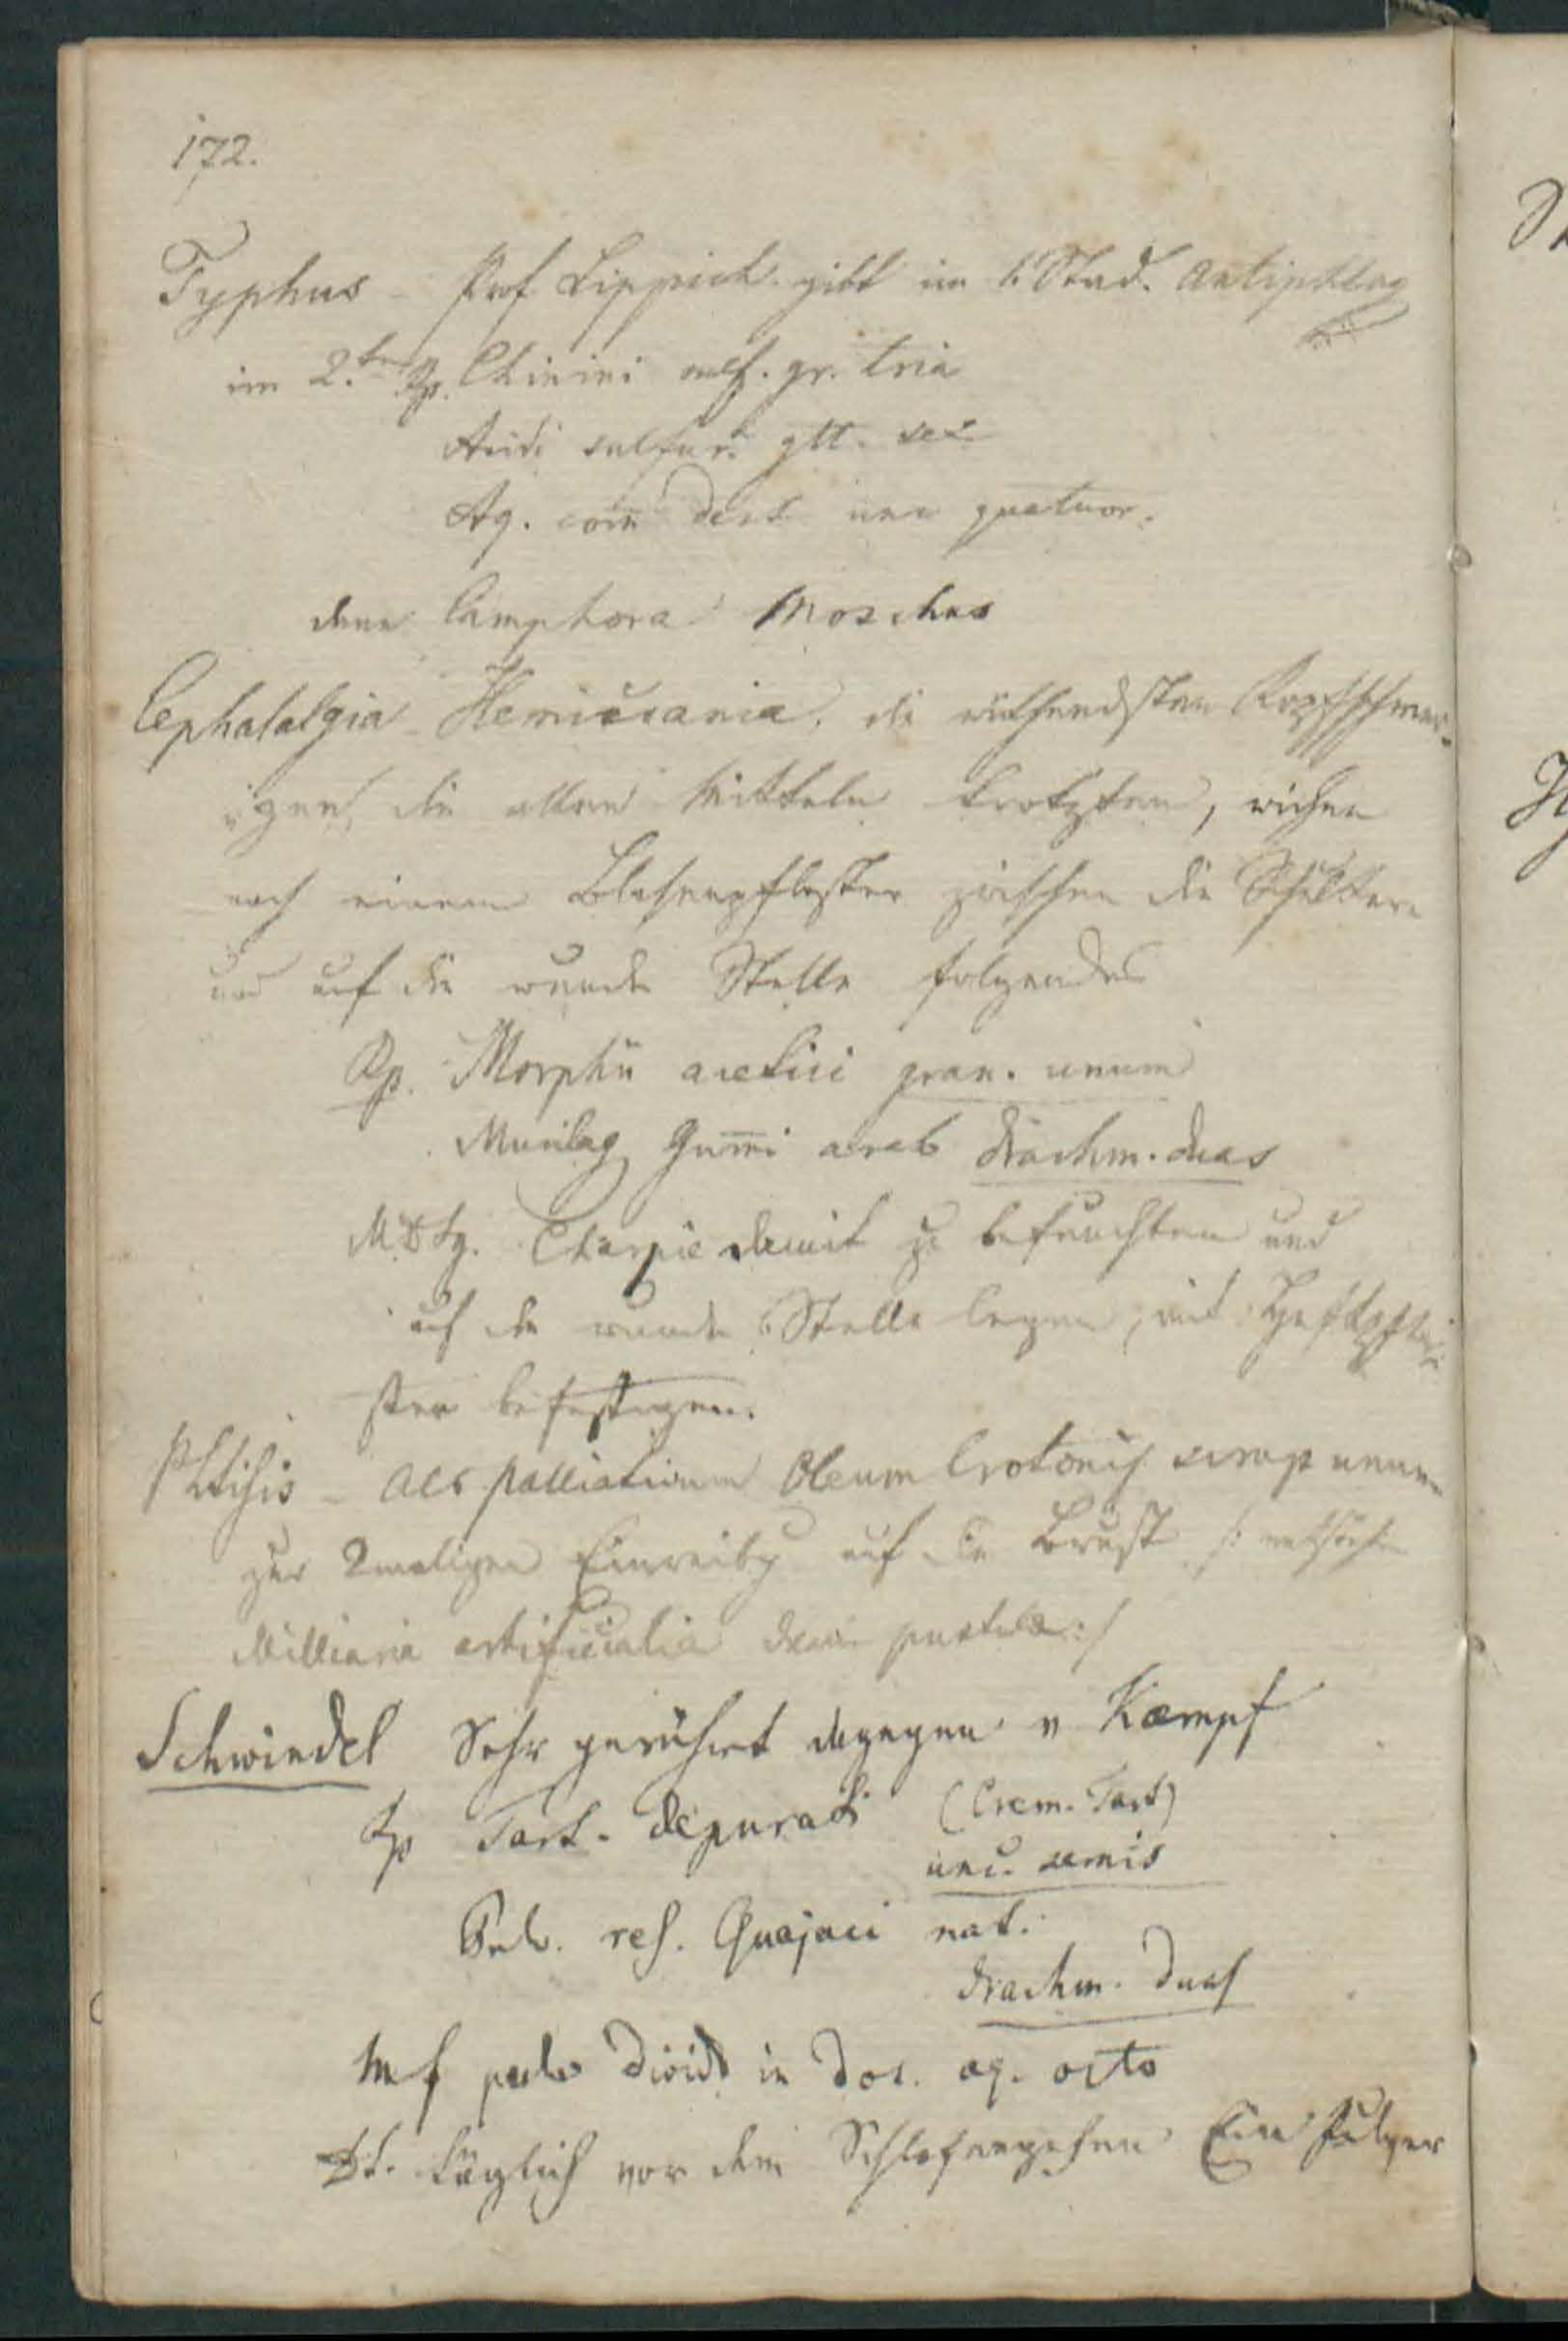 172.
Typhus – Prof Lippich gibt im 1. Stad. Antiphlog
im 2.ten Rp. Chinini sulf. gr. tria
Acidi sulfur. gtt. sex
Aq. com dest unc quatuor.
dann Camphora Moschus
Cephalalgia Hemicrania, die wüthendsten Kopfschmer-
zen, die allen Mitteln trotzten, wichen
nach einem Blasenpflaster zwischen die Schultern
und auf die wunde Stelle folgendes
Rp. Morphii acetici gran. unum
Mucilag Gumi arab drachm. duas
M.D.Sg. Charpie damit zu befeuchten und
auf die wunde Stelle legen, mit Heftpfla-
ster befestigen.
Phtisis – Als Palliativum Oleum Crotonis scrup unum
zur 2maligen Einreibg auf die Brust /:
Milliaria artificialia dann pustulae:/
Schwindel Sehr gerühmt dagegen v Kaempf
Rp Tart. depurati (Crem. Tart)
unc. semis
Pulv. res. Guajaci nat.
drachm. duas
M f pulv divid in dos. aq. octo
DS. täglich vor dem Schlafengehen Ein Pulver